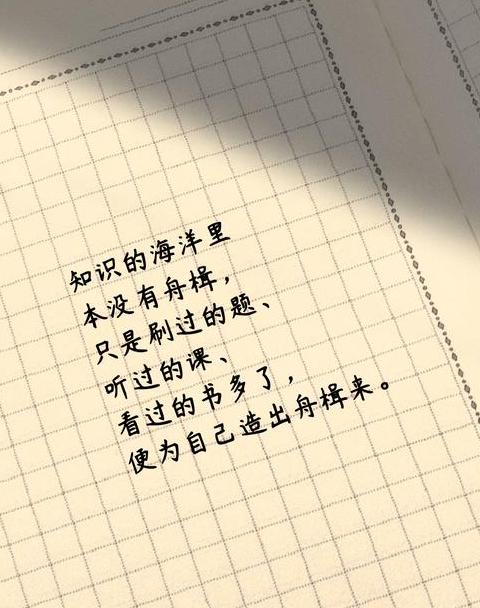 知识的海洋里
本没有舟楫，
只是刷过的题、
听过的课、
看过的书多了，
便为自己造出舟楫来。